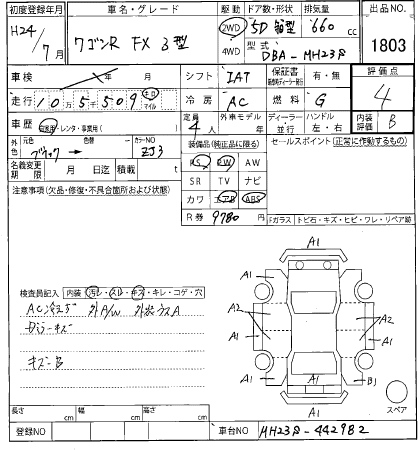 初度登録年月 車名・グレード 駆動 ドア数・形状 排気量 出品NO
H24/7月 ワゴンR FX 3型 2WD 4WD 5D 箱型 660 cc 1803
型式 DBA-MH23S
車検 年 月 シフト IAT 保証書 有・無 評価点
走行 10万5509 キロ マイル 冷房 AC 燃料 G 4
車歴 自家用・レンタ・事業用( ) 定員 4人 外車モデル 年 ディーラー・並行 ハンドル 左・右 内装評価 B
外色 元色 ブラック→ 色替 カラーNO ZJ3 装備品(純正品に限る) セールスポイント(正常に作動するもの)
名義変更期限 月 日迄 積載 t PS PW AW
SR TV ナビ
注意事項(欠品・修復・不具合箇所および状態) カワ エアB ABS
R券 9780
Fガラス トビ石・キズ・ヒビ・ワレ・リペア跡
A1
A1 A1
検査員記入 内装 汚レ・スレ・キズ・キレ・コゲ・穴
A2 A2
A1 A1
キズ・B
A1 B1
A1
スペア
長さ cm 幅 cm 高さ cm
登録NO 車台NO MH23S-442982